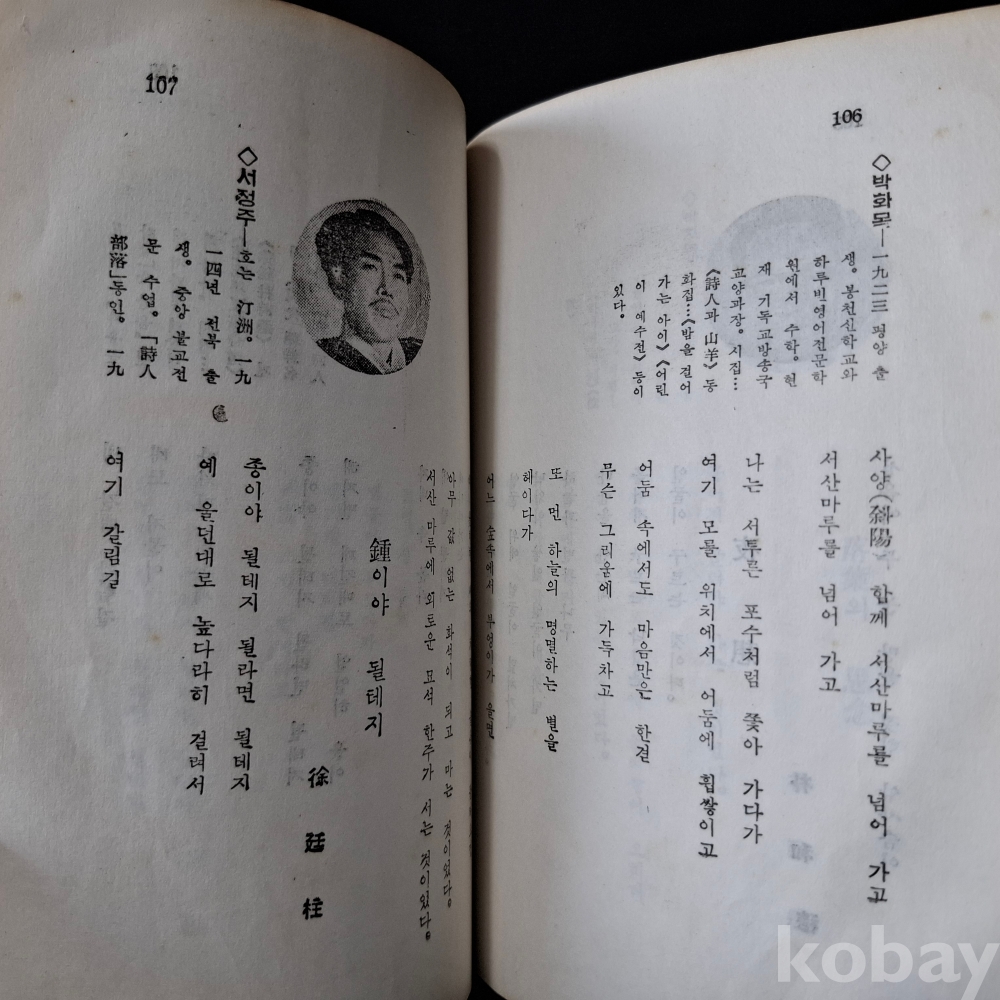 106
◇박화목―一九二三 평양 출
생。 봉천신학교와
하루빈영어전문학
원에서 수학。 현
재 기독교방송국
교양과장。 시집…
《詩人과 山羊》 동
화집…《밤을 걸어
가는 아이》《어린
이 예수전》 등이
있다。
사양(斜陽) 함께 서산마루를 넘어 가고
서산마루를 넘어 가고
나는 서투른 포수처럼 쫓아 가다가
여기 모를 위치에서 어둠에 휩쌓이고
어둠 속에서도 마음만은 한결
무슨 그리움에 가득차고
또 먼 하늘의 명멸하는 별을
헤이다가
어느 숲속에서 부엉이가 울면
아무 값 없는 화석이 되고 마는 것이었다。
서산 마루에 외로운 묘석 한주가 서는 것이었다。
107
◇서정주―호는 汀洲。 一九
一四년 전북 출
생。 중앙 불교전
문 수업。 「詩人
部落」동인。 一九
鍾이야 될테지
徐廷柱
종이야 될테지 될라면 될테지
예 울던대로 높다라히 걸려서
여기 갈림길
kobay